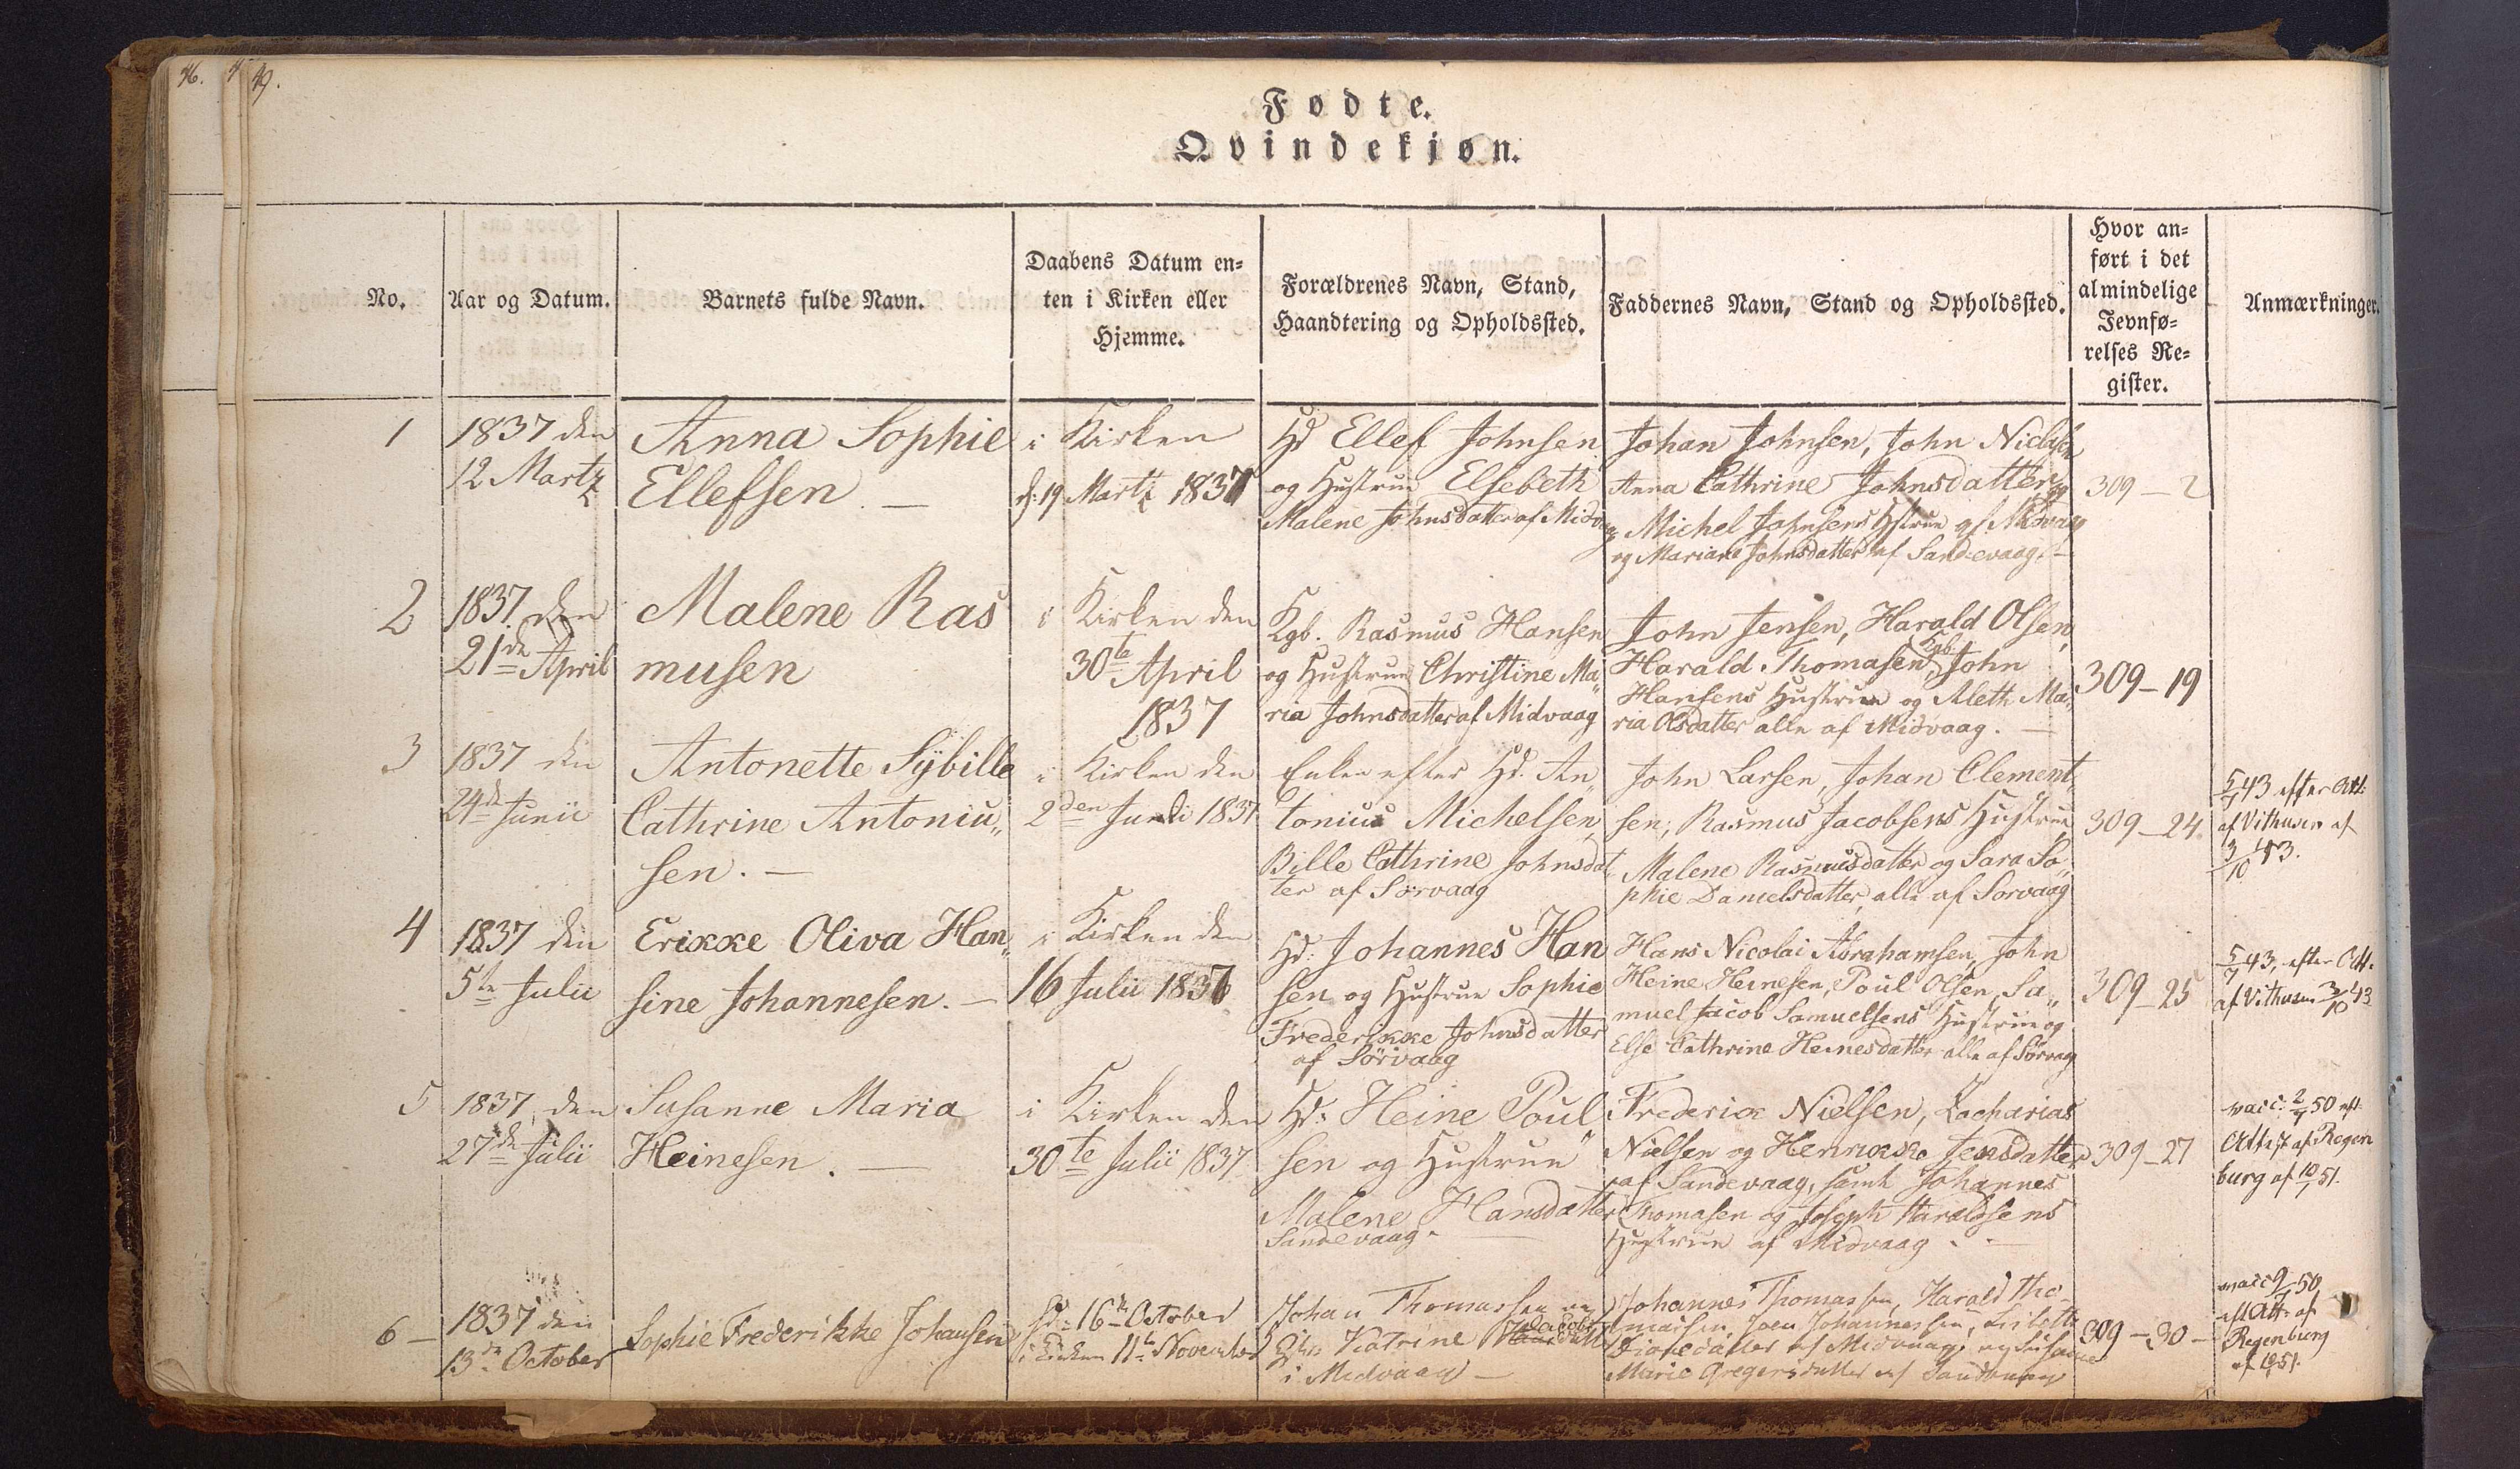 46.
49.
Fødte.
Qvindekjøn.
No.
Aar og Datum.
Barnets fulde Navn.
Daabens Datum en=
ten i Kirken eller
Hjemme.
Forældrenes Navn, Stand,
Haandtering og Opholdssted.
Faddernes Navn, Stand og Opholdssted.
Hvor an=
ført i det
almindelige
Jevnfø=
relses Re=
gister.
Anmærkninger.
1
1837 den
12 Martz
Anna Sophie
Ellefsen. —
i Kirken
d: 19 Martz 1837
Hd Ellef Johnsen
og Hustrue Elsebeth
Malene Johnsdatter af Midvaag
Johan Johnsen, John Niclasen
Anna Cathrine Johnsdatter,
Michel Johnsens Hstrue af Midvaag
og Mariane Johnsdatter af Sandevaag. —
309 — 2
2
1837 den
21de April
Malene Ras
musen
i Kirken den
30te April
1837
Kgb. Rasmus Hansen
og Hustrue Christine Ma„
ria Johnsdatter af Midvaag
John Jensen, Harald Olsen,
Harald Thomasen, Kgb. John
Hansens Hustrue og Aleth Ma„
ria Olsdatter alle af Midvaag. —
309 — 19
3
1837 den
24de Junii
Antonette Sÿbille
Cathrine Antoniu„
sen. —
i Kirken den
2den Juli 1837
Enken efter Hd. An„
tonius Michelsen,
Bille Cathrine Johnsdat„
ter af Sørvaag
John Larsen, Johan Clement„
sen, Rasmus Jacobsens Hustrue
Malene Rasmusdatter og Sara So„
phie Danielsdatter, alle af Sorvaag
309 — 24.
5/7 43 efter Att:
af Vithusen af
3/10 43.
4
1837 den
5te Julii
Erikke Oliva Han„
sine Johannesen. —
i Kirken den
16 Julii 1837
Hd: Johannes Han
sen og Hustrue Sophie
Frederikke Johnsdatter
af Sörvaag
Hans Nicolai Abrahamsen, John
Heine Heinesen, Poul Olsen, Sa„
muel Jacob Samuelsens Hustrue og
Else Cathrine Heinesdatter alle af Sörvaag
309 — 25
5/7 43, efter Att.
af Vithusen 3/10 43
5
1837, den
27de Julii
Susanne Maria
Heinesen. —
i Kirken den
30te Julii 1837
Hd: Heine Poul
sen og Hustrue
Malene Hansdatter
Sandevaag. —
Frederik Nielsen, Zacharias
Nielsen og Henrikke Jensdatter
af Sandevaag, samt Johannes
Thomasen og Joseph Haraldsens
Hustrue af Midvaag. —
309 — 27
vacc: 2/7 50 eft
Attest af Regen
burg af 10/1 51.
6 —
1837 den
13de October
Sophie Frederikke Johansen
Hd: 16de October
i Kirken 11te November
Johan Thomassen og
Katrine Jacobsd
i Midvaag —
Johannes Thomassen, Harald Tho„
massen, Joen Johannessen, Lisbeth
af Midvaag, og Susanne
Marie Gregersdatter af Sandevaag
309 — 30 —
vacc 9/7 50
eft Att: af
Regenburg